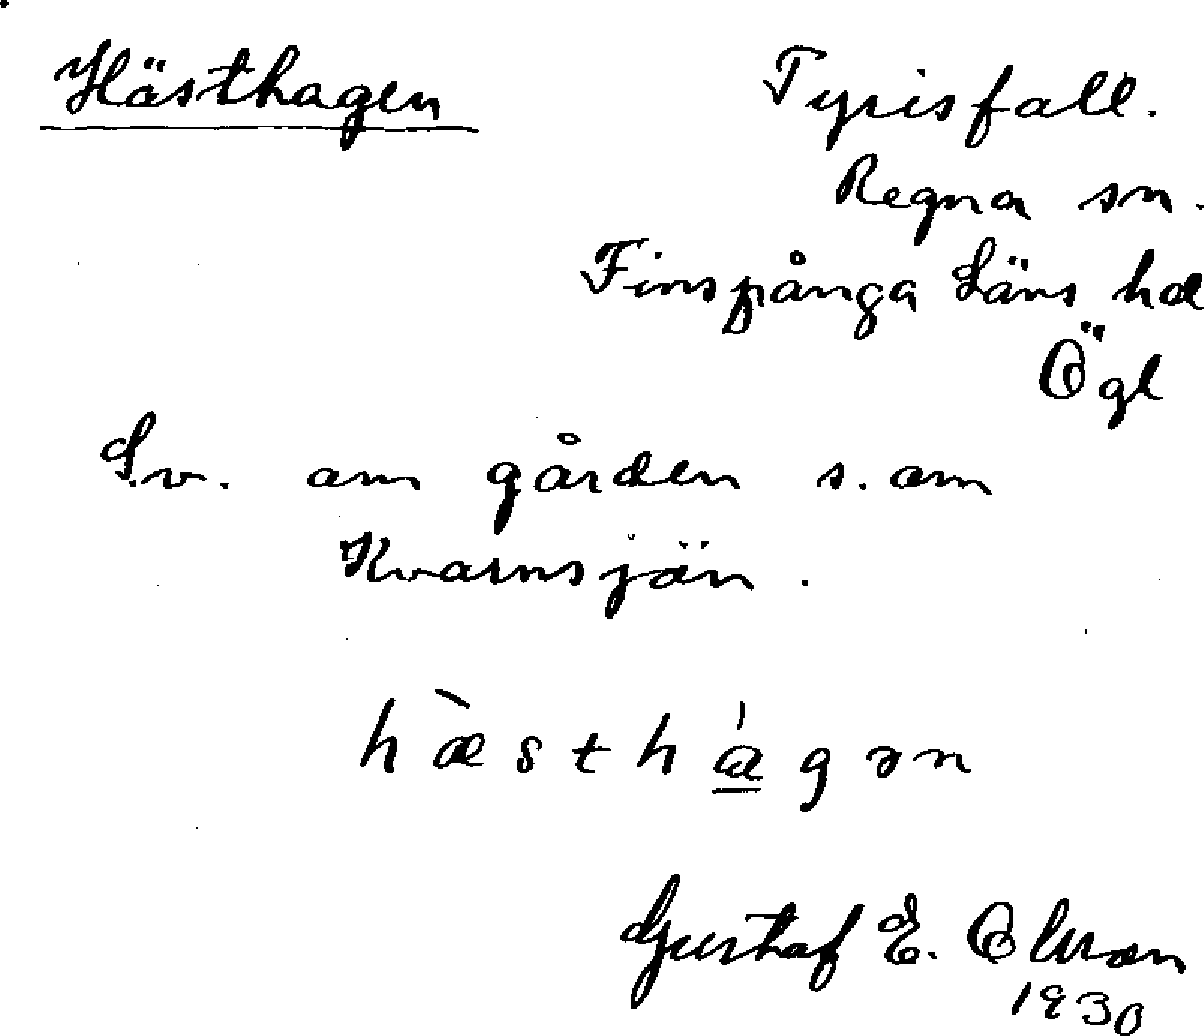 Hästhagen
Tyrisfall.
Regna sn.
Finspånga Läns hd
Ögl
S.v. om gården s. om
Kvarnsjön.
hæ̀sthág̱ən
Gustaf E. Olsson
1930